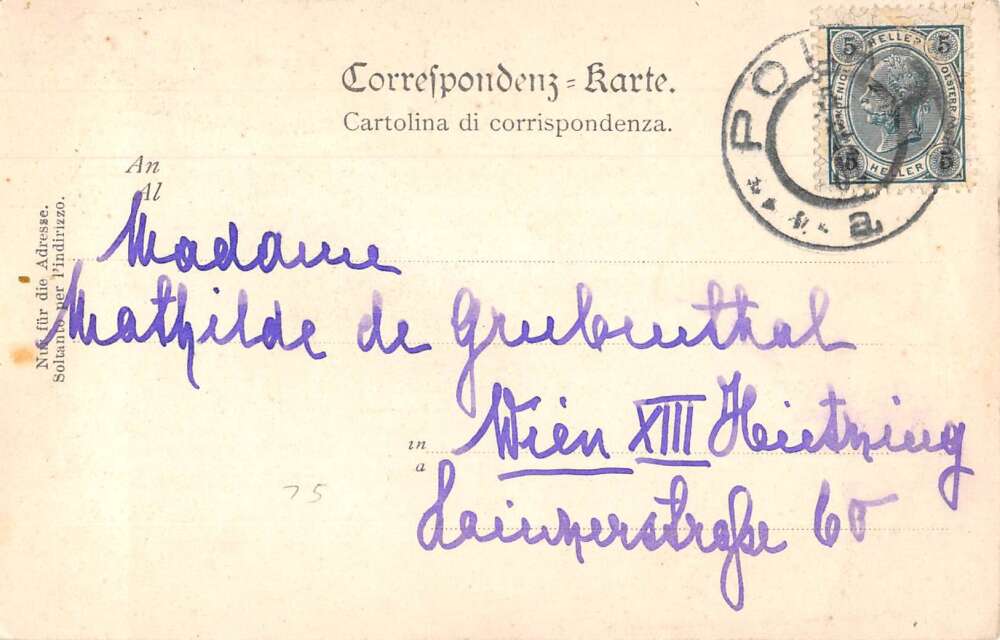 Correspondenz-Karte.
Cartolina di corrispondenza.
POL
a
5 HELLER 5
5 HELLER 5
An
Al
Madame
Mathilde de Grubenthal
in
a
Wien XIII Hietzing
Lainzerstraße 60
Nur für die Adresse.
Soltanto per l'indirizzo.
75